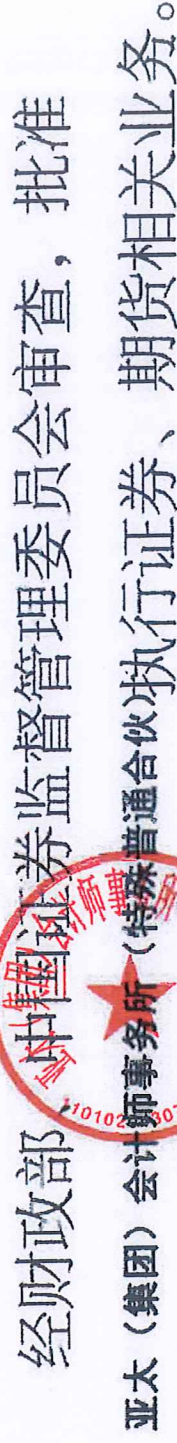 经财政部、中国证券监督管理委员会审查，批准
亚太（集团）会计师事务所（特殊普通合伙）执行证券、期货相关业务。